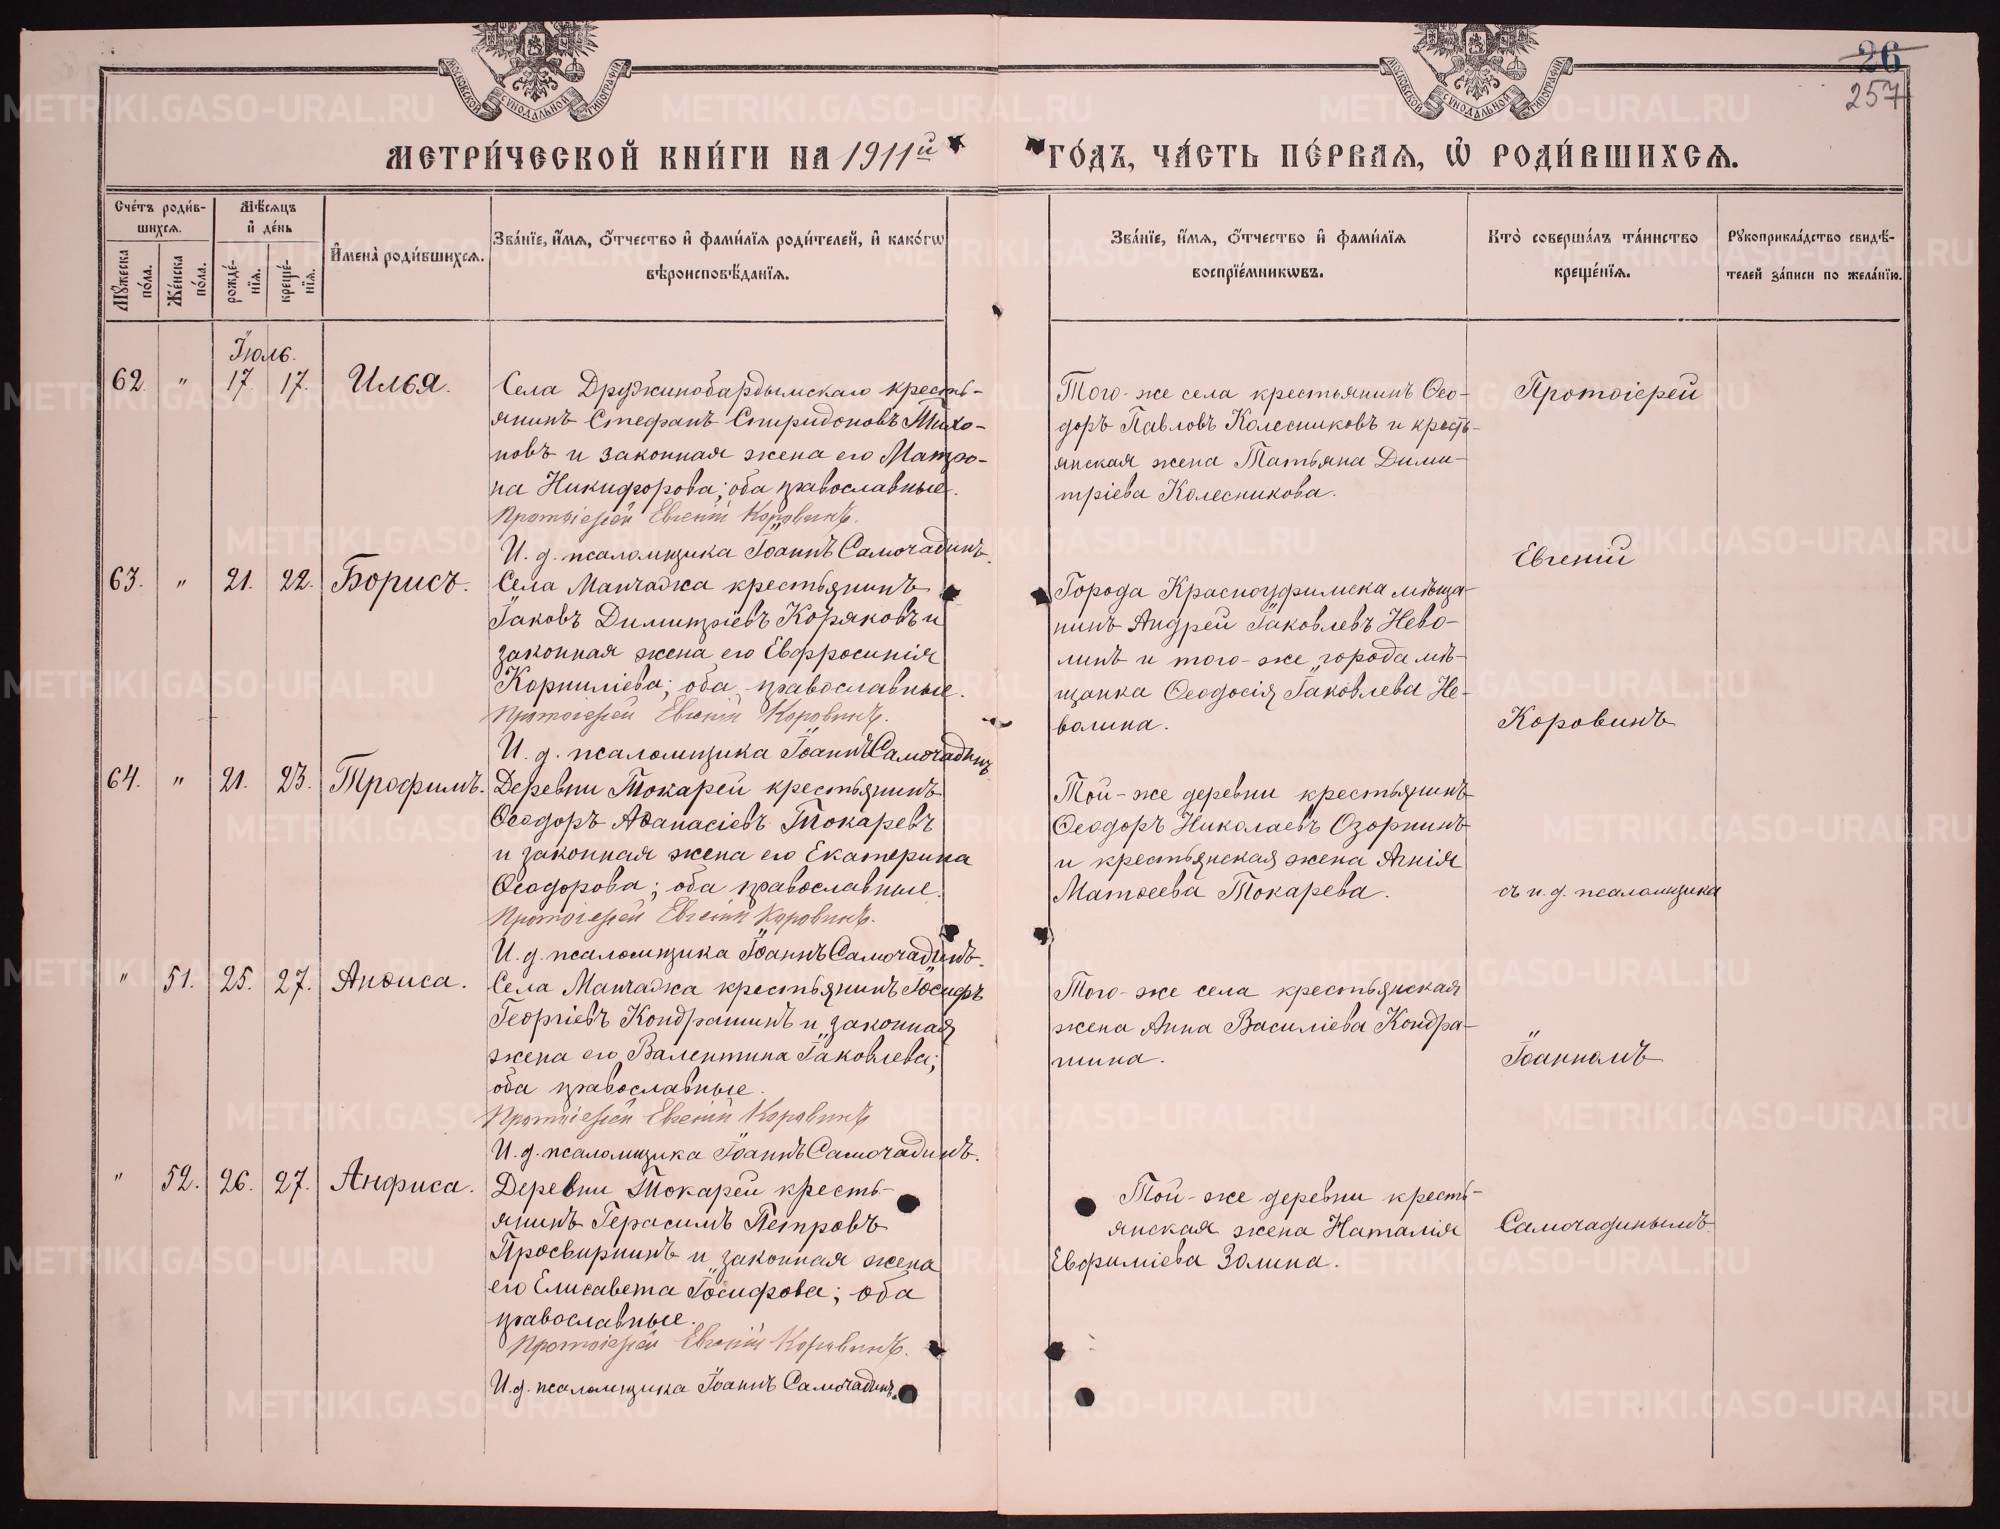 26
257
МОСКОВСКОЙ СѴНОДАЛЬНОЙ ТИПОГРАФИИ
МОСКОВСКОЙ СѴНОДАЛЬНОЙ ТИПОГРАФИИ
МЕТРИ́ЧЕСКОЙ КНИ́ГИ НА 1911й ГО́ДЪ, ЧА́СТЬ ПЕ́РВАЯ, Ѡ҆ РОДИ́ВШИХСЯ.
Сче́тъ роди́в-
шихся.
Мѣ́сяцъ
и҆ де́нь
Мꙋ́жеска
по́ла.
Же́нска
по́ла.
рожде́-
нїя.
креще́-
нїя.
И҆мена̀ роди́вшихся.
Зва́нїе, и҆́мя, ѻ҆́тчество и҆ фами́лїя роди́телей, и҆ како́гѡ
вѣроисповѣ́данїя.
Зва́нїе, и҆́мя, ѻ҆́тчество и҆ фами́лїя
воспрїе́мникѡвъ.
Кто̀ соверша́лъ та́инство
креще́нїя.
Рꙋкоприкла́дство свидѣ́-
телей за́писи по жела́нїю.
Іюль.
62. " 17 17. Илья.
Села Дружинобардымскаго кресть-
янинъ Стефанъ Спиридоновъ Тихо-
новъ и законная жена его Матро-
на Никифорова; оба православные.
Протоіерей Евгеній Коровинъ.
И. д. псаломщика Іоаннъ Самочадинъ.
Того-же села крестьянинъ Ѳео-
доръ Павловъ Колесниковъ и кресть-
янская жена Татьяна Дими-
тріева Колесникова.
Протоіерей
63. " 21. 22. Борисъ.
Села Манчажа крестьянинъ
Іаковъ Димитріевъ Коряковъ и
законная жена его Евфросинія
Корниліева; оба православные.
Протоіерей Евгеній Коровинъ.
И. д. псаломщика Іоаннъ Самочадинъ
Города Красноуфимска мѣща-
нинъ Андрей Іаковлевъ Нево-
линъ и того-же города мѣ-
щанка Ѳеодосія Іаковлева Не-
волина.
Евгеній
Коровинъ
64. " 21. 23. Трофимъ.
Деревни Токарей крестьянинъ
Ѳеодоръ Аѳанасіевъ Токаревъ
и законная жена его Екатерина
Ѳеодорова; оба православные.
Протоіерей Евгеній Коровинъ.
И. д. псаломщика Іоаннъ Самочадинъ.
Той-же деревни крестьянинъ
Ѳеодоръ Николаевъ Озорнинъ
и крестьянская жена Агнія
Матѳеева Токарева.
съ и. д. псаломщика
" 51. 25. 27. Анѳиса.
Села Манчажа крестьянинъ Іосифъ
Георгіевъ Кондрашинъ и законная
жена его Валентина Іаковлева;
оба православные.
Протоіерей Евгеній Коровинъ
И. д. псаломщика Іоаннъ Самочадинъ.
Того-же села крестьянская
жена Анна Василіева Кондра-
шина.
Іоанномъ
" 52. 26. 27. Анфиса.
Деревни Токарей кресть-
янинъ Герасимъ Петровъ
Просвирнинъ и законная жена
его Елисавета Іосифова; оба
православные.
Протоіерей Евгеній Коровинъ.
И. д. псаломщика Іоаннъ Самочадинъ.
Той-же деревни кресть-
янская жена Наталія
Евфиміева Золина.
Самочадинымъ